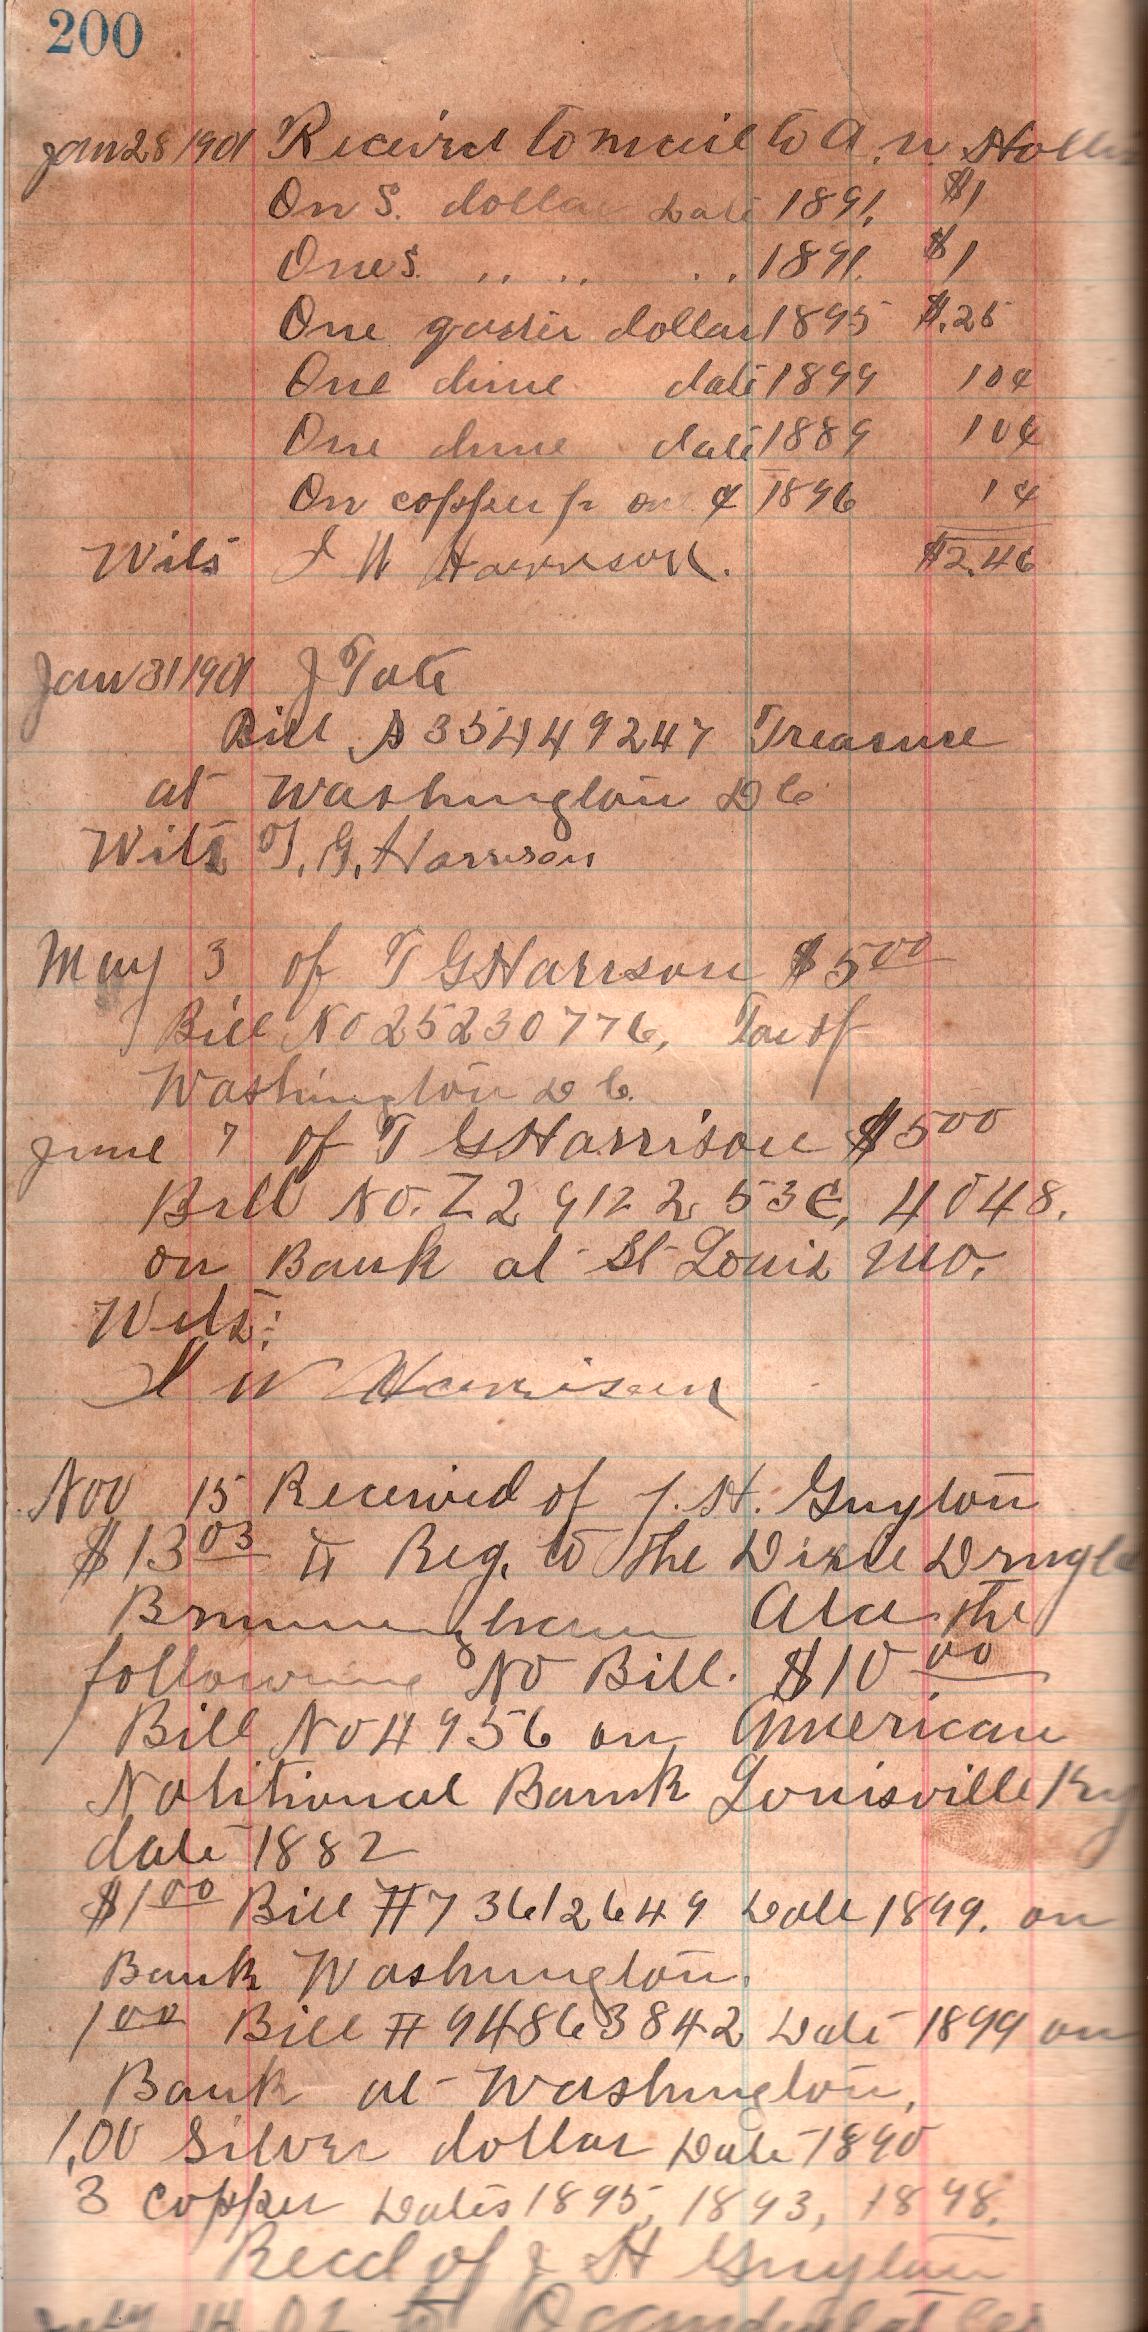 200
Jan 28 1901 Received to mail to A. N. Hollis
On S. dollar Date 1891. $1
One S. ,, ,, ,, 1891. $1
One quater dollar 1895 $.25
One dime date 1899 10¢
One dime date 1889 10¢
On copper p on ¢ 1896 1¢
Wits J W Harrison. $2.46
Jan 31 1901 J Tate
Bill 35449247 Treasure
at Washington D C
Wits T. G. Harrison
May 3 of T G Harrison $5 00
Bill No 25230776,
Washington D C.
June 7 of T G Harrison $5 00
Bill No. Z2912253E, 4048.
on Bank at St Louis Mo.
Wits:
J W Harrison
Nov 15 Received of J. H. Guyton
$13 03 Reg. to the Dixie
Brmingham Ala. the
following No Bill. $10 00
Bill No 4956 on American
Natitional Bank Louisville Ky
date 1882
$1 00 Bill # 73612649 Date 1899. on
Bank Washington.
1 00 Bill # 94863842 Date 1899 on
Bank at Washington,
1,00 Silver dollar Date 1890
3 copper Dates 1895, 1893, 1898.
Recd of J H Guyton